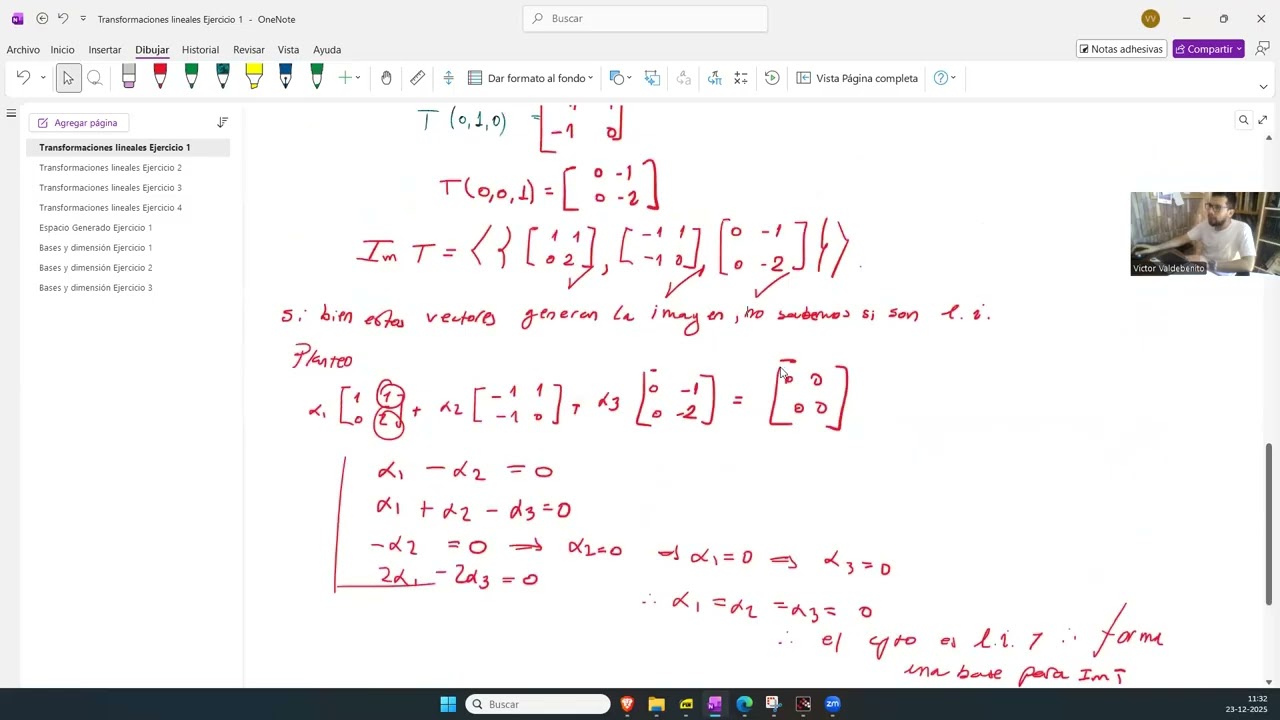 Transformaciones lineales Ejercicio 1 - OneNote
Buscar
VV
Archivo Inicio Insertar Dibujar Historial Revisar Vista Ayuda
Notas adhesivas Compartir
Dar formato al fondo Vista Página completa
Agregar página
Transformaciones lineales Ejercicio 1
Transformaciones lineales Ejercicio 2
Transformaciones lineales Ejercicio 3
Transformaciones lineales Ejercicio 4
Espacio Generado Ejercicio 1
Bases y dimensión Ejercicio 1
Bases y dimensión Ejercicio 2
Bases y dimensión Ejercicio 3
Victor Valdebenito
T (0,1,0) = [
-1 0]
T(0,0,1) = [ 0 -1
0 -2 ]
Im T = ⟨ { [ 1 1 ], [ -1 1 ], [ 0 -1 ] } ⟩.
0 2 -1 0 0 -2
Si bien estos vectores generan la imagen, no sabemos si son l.i.
Planteo
α1 [ 1 1 ] + α2 [ -1 1 ] + α3 [ 0 -1 ] = [ 0 0 ]
0 2 -1 0 0 -2 0 0
α1 - α2 = 0
α1 + α2 - α3 = 0
-α2 = 0 ⇒ α2=0 ⇒ α1=0 ⇒ α3=0
2α1 - 2α3 = 0
∴ α1 = α2 = α3 = 0
∴ el cjto es l.i. y ∴ forma
una base para ImT
Buscar
11:32
23-12-2025